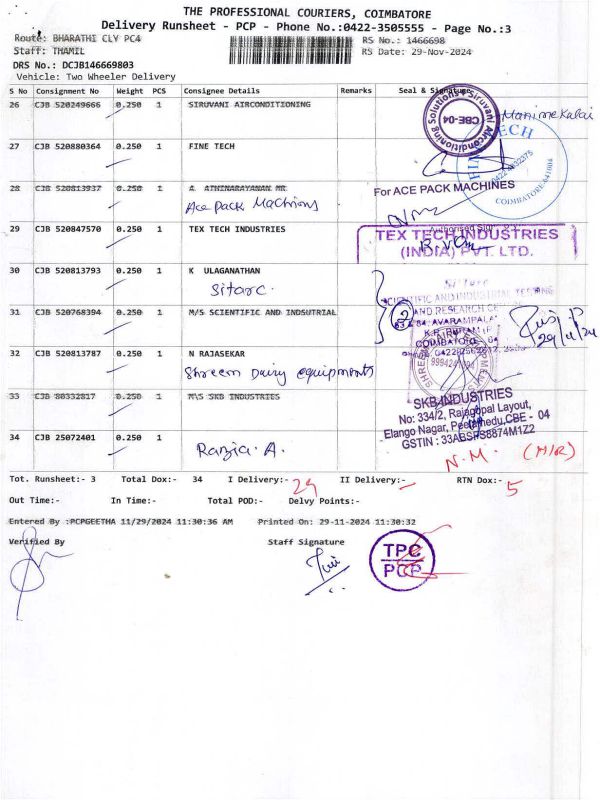 THE PROFESSIONAL COURIERS, COIMBATORE
Delivery Runsheet - PCP - Phone No.:0422-3505555 - Page No.:3
Route: BHARATHI CLY PC4
RS No.: 1466698
Staff: THAMIL
RS Date: 29-Nov-2024
DRS No.: DCJB146669803
Vehicle: Two Wheeler Delivery
S No Consignment No Weight PCS Consignee Details Remarks Seal & Signature
26 CJB 520249666 0.250 1 SIRUVANI AIRCONDITIONING
Siruvani Airconditioning Solutions
CBE-04
Manimekalai
27 CJB 520880364 0.250 1 FINE TECH
COIMBATORE-641004
28 CJB 520813937 0.250 1 A ATHINARAYANAN MR
Ace pack Machions
For ACE PACK MACHINES
29 CJB 520847570 0.250 1 TEX TECH INDUSTRIES
TEX TECH INDUSTRIES
(INDIA) PVT. LTD.
30 CJB 520813793 0.250 1 K ULAGANATHAN
Sitarc.
31 CJB 520768394 0.250 1 M/S SCIENTIFIC AND INDSUTRIAL
2
29/11/24
32 CJB 520813787 0.250 1 N RAJASEKAR
Shreem Dairy equipments
33 CJB 80332817 0.250 1 M\S SKB INDUSTRIES
SKB INDUSTRIES
No: 334/2, Rajagopal Layout,
Elango Nagar, Peelamedu,CBE - 04
34 CJB 25072401 0.250 1
Razia. A.
N.M. (H/R)
Tot. Runsheet:- 3 Total Dox:- 34 I Delivery:- 29 II Delivery:- RTN Dox:- 5
Out Time:- In Time:- Total POD:- Delvy Points:-
Entered By :PCPGEETHA 11/29/2024 11:30:36 AM Printed On: 29-11-2024 11:30:32
Verified By Staff Signature
TPC
PCP